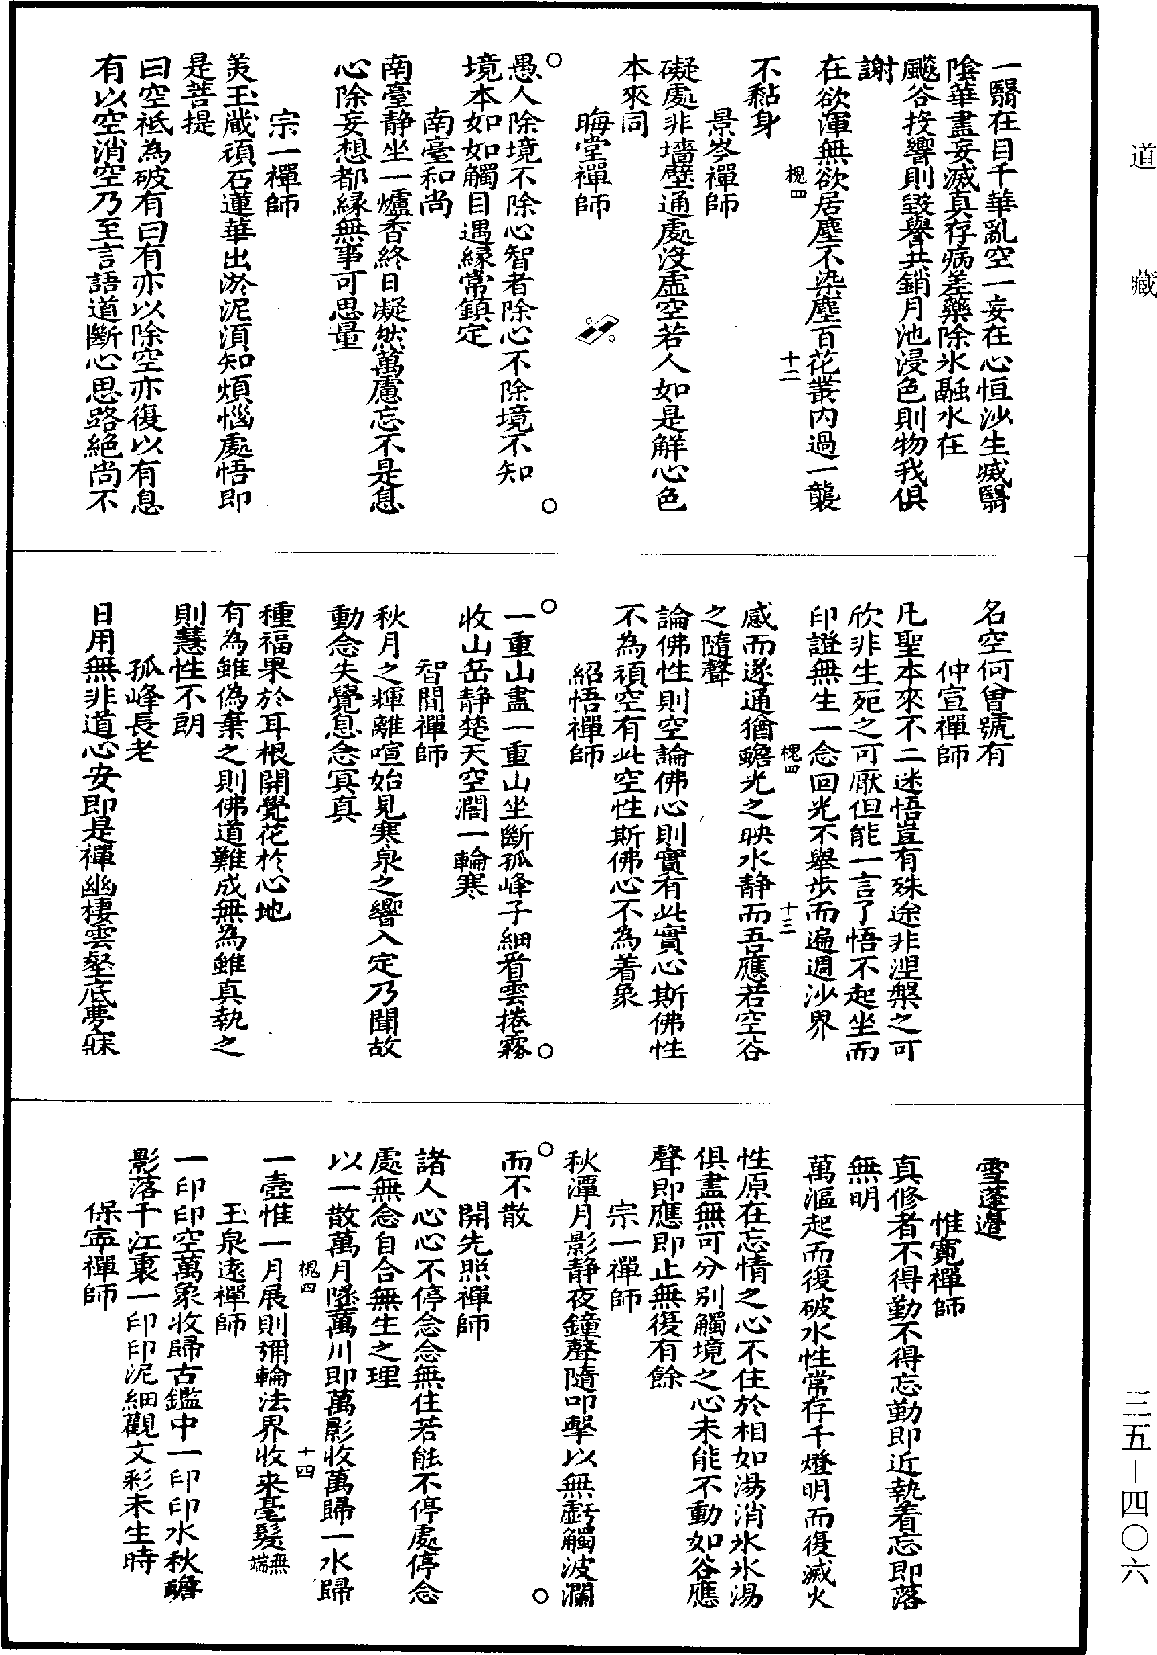 道藏
一翳在目千華亂空一妄在心恒沙生滅翳
除華盡妄滅真存病差藥除氷融水在
飈谷投響則毀譽共銷月池浸色則物我俱
謝
在欲渾無欲居塵不染塵百花叢内過一襲
槐四
十二
不黏身
景岑禪師
礙處非墻壁通處没虚空若人如是解心色
本來同
晦堂禪師
愚人除境不除心智者除心不除境不知
境本如如觸目遇緣常鎮定
南臺和尚
南臺静坐一爐香終日凝然萬慮忘不是息
心除妄想都緣無事可思量
宗一禪師
美玉藏頑石蓮華出淤泥須知煩惱處悟即
是菩提
曰空祗為破有曰有亦以除空亦復以有息
有以空消空乃至言語道斷心思路絶尚不
名空何曾號有
仲宣禪師
凡聖本來不二迷悟豈有殊途非涅槃之可
欣非生死之可厭但能一言了悟不起坐而
印證無生一念回光不舉步而遍週沙界
槐四
十三
感而遂通猶蟾光之映水静而吾應若空谷
之隨聲
論佛性則空論佛心則實有此實心斯佛性
不為頑空有此空性斯佛心不為着象
紹悟禪師
一重山盡一重山坐斷孤峰子細看雲捲霧
收山岳静楚天空濶一輪寒
智閒禪師
秋月之輝離喧始見寒泉之響入定乃聞故
動念失覺息念冥真
種福果於耳根開覺花於心地
有為雖偽棄之則佛道難成無為雖真執之
則慧性不朗
孤峰長老
日用無非道心安即是禪幽棲雲壑底夢寐
雪蓬邊
惟寛禪師
真修者不得勤不得忘勤即近執着忘即落
無明
萬漚起而復破水性常存千燈明而復滅火
性原在忘情之心不住於相如湯消氷氷湯
俱盡無可分别觸境之心未能不動如谷應
聲即應即止無復有餘
宗一禪師
秋潭月影静夜鐘聲隨叩擊以無虧觸波瀾
而不散
開先照禪師
諸人心心不停念念無住若能不停處停念
處無念自合無生之理
以一散萬月墜萬川即萬影收萬歸一水歸
槐四
十四
一壺惟一月展則彌輪法界收來毫髮無端
玉泉遠禪師
一印印空萬象收歸古鑑中一印印水秋蟾
影落千江裏一印印泥細觀文彩未生時
保寧禪師
三五-四〇六